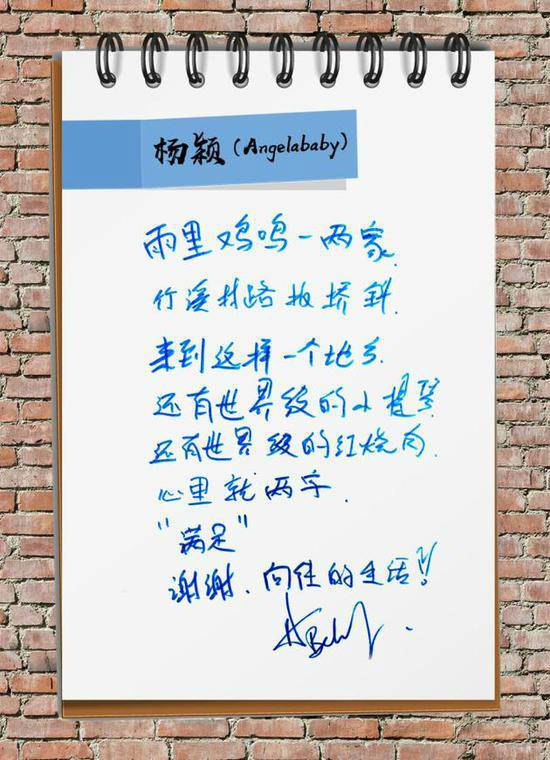 杨颖(Angelababy)
雨里鸡鸣一两家
竹溪村路板桥斜.
来到这样一个地方.
还有世界级的小提琴
还有世界级的红烧肉.
心里就两字.
"满足"
谢谢.向往的生活!!